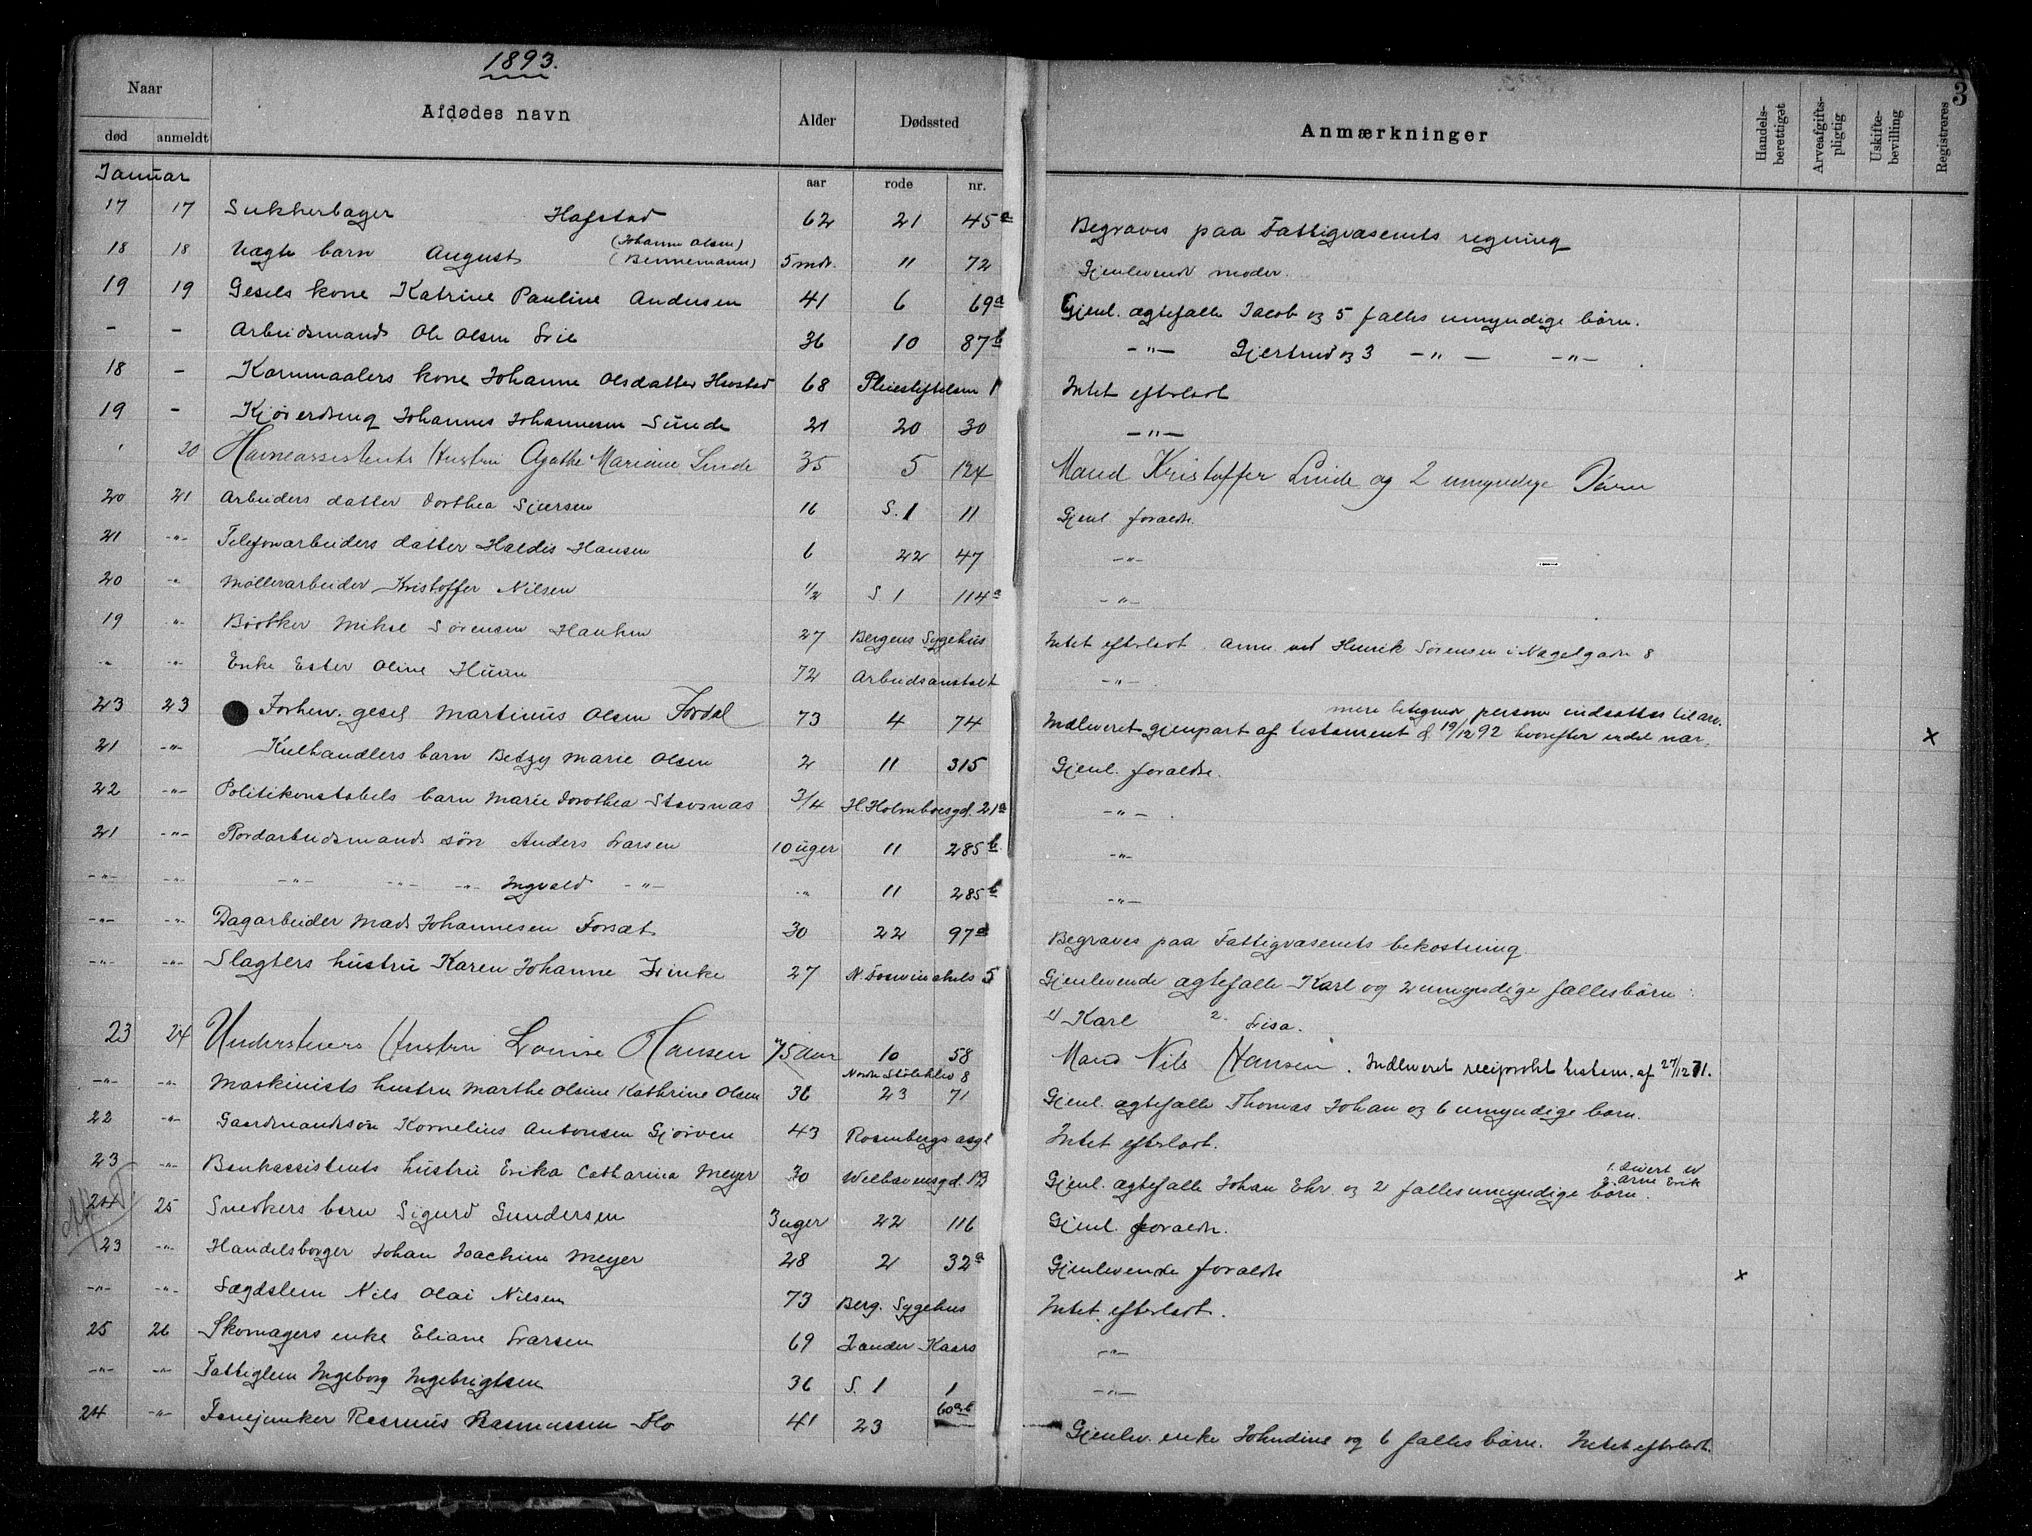 1893.
3
Naar
Afdødes navn
Alder
Dødssted
Anmærkninger
Handels-berettiget
Arveafgifts-pligtig
Uskifte-bevilling
Registreres
død anmeldt
Januar
aar rode nr.
17 17 Sukkerbager Hafstad 62 21 45a Begraves paa Fattigvæsenets regning
18 18 Vægte barn August (Johanne Olsen) (Bennemann) 5 mdr. 11 72 Gjenlevende moder.
19 19 Gesels kone Katrine Pauline Andersen 41 6 69a Gjenl. ægtefælle Jacob og 5 fælles umyndige børn.
- - Arbeidsmand Ole Olsen 36 10 87b -"- Gjertrud og 3 -"- -"-
18 - Kornmaalers kone Johanne Olsdatter Havstad 68 Pleiestiftelsen 1 Intet efterladt
19 - Johannes Johannesen Sunde 21 20 30 -"-
' 20 Havneassistents Hustru Agathe Mariane Linde 35 5 124 Mand Kristoffer Linde og 2 umyndige Børn
20 21 Arbeiders datter Dorthea Sjursen 16 S. 1 11 Gjenl. forældre.
21 -"- Telefonarbeiders datter Haldis Hansen 6 22 47 -"-
20 " Møllerarbeider Kristoffer Nilsen 1/2 S 1 114a -"-
19 " Bødker Mikal Sørensen Hauken 27 Bergens Sygehus Intet efterladt. Anm. ved Henrik Sørensen i Nægelgaden 8
" " Enke Ester Oline Husen 72 Arbeidsanstalt -"-
23 23 Forhenv. gesel Martinus Olsen Fordal 73 4 74 Indleveret gjenpart af testament d 19/12 92 hvorefter endel nær-
mere betegnede personer indsættes til arv. x
21 -"- Kulhandlers barn Betzy Marie Olsen 2 11 315 Gjenl. forældre.
22 -"- Politikonstabels barn Marie Dorothea Stavsnæs 3/4 H. Holmboesgd. 21a -"-
21 -"- arbeidsmands søn Anders Larsen 10 uger 11 285b. -"-
-"- -"- -"- -"- -"- Ingvald -"- " 11 285b -"-
-"- -"- Dagarbeider Mads Johannesen 30 22 97a Begraves paa Fattigvæsenets bekostning
-"- -"- Slagters hustru Karen Johanne 27 N. 5 Gjenlevende ægtefælle Karl og 2 umyndige fællesbørn:
1) Karl 2. Lisa.
23 24 Hustru Louise Hansen 75 Aar 10 58 Mand Nils Hansen. Indleveret reciprokt testam. af 27/12 71.
Nordre 8
-"- -"- Maskinists hustru Marthe Olsine Kathrine Olsen 36 23 71 Gjenl. ægtefælle Thomas Johan og 6 umyndige børn.
22 -"- Gaardmandssøn Kornelius Antonsen Gjørven 43 Rosenbergs asyl Intet efterladt.
23 -"- Bankassistents hustru Erika Catharina Meyer 30 Welhavensgd. 13 Gjenl. ægtefælle Johan Ehr. og 2 fælles umyndige børn. 1. Sivert W 2. Arne Erik
24 25 Snedkers barn Sigurd Gundersen 3 uger 22 116 Gjenl. forældre.
23 " Handelsborger Johan Joachim Meyer 28 2 32a Gjenlevende forældre x
-"- -"- Lægdslem Nils Olai Nilsen 73 Berg. Sygehus Intet efterladt.
25 26 Skomagers enke Eliane Larsen 69 Zander Kaars -"-
-"- -"- Fattiglem Ingeborg Ingebrigtsen 36 S. 1 1 -"-
24 -"- Fanejunker Rasmus Rasmussen Flo 41 23 60a-b Gjenlev. enke Johndine og 6 fælles børn. Intet efterladt.